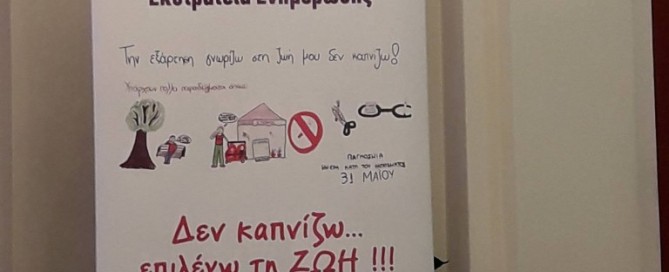 Εκστρατεία Ενημέρωσης
Την εξάρτηση γνωρίζω στη ζωή μου δεν καπνίζω!
Υπάρχουν πολλά παραδείγματα όπως:
ΠΑΓΚΟΣΜΙΑ
ΗΜΕΡΑ ΚΑΤΑ ΤΟΥ ΚΑΠΝΙΣΜΑΤΟΣ
31 ΜΑΪΟΥ
Δεν καπνίζω...
επιλέγω τη ΖΩΗ !!!